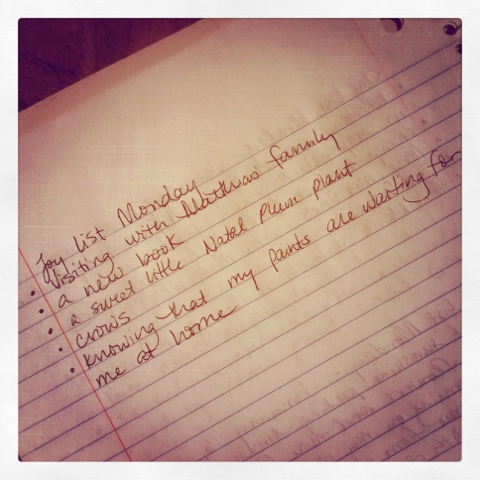 Joy list Monday
• Visiting with Matthews family
• a new book
• a sweet little Natal Plum plant
• crows
• knowing that my pants are waiting for
me at home